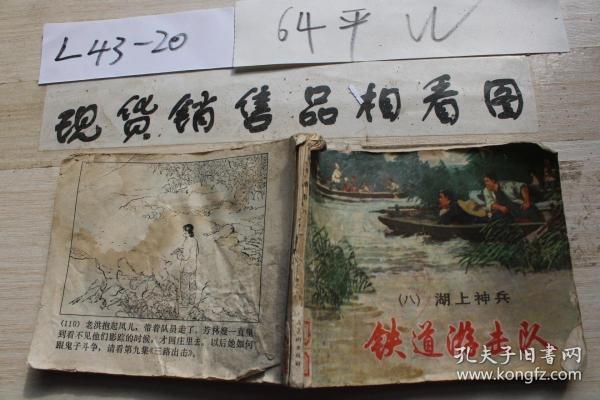 L43-20
64平
现货销售品相看图
(八) 湖上神兵
铁道游击队
(110) 老洪抱起凤儿,带着队员走了。芳林嫂一直望
到看不见他们影踪的时候,才回庄里去。以后她如何
跟鬼子斗争,请看第九集《三路出击》。
孔夫子旧书网
www.kongfz.com